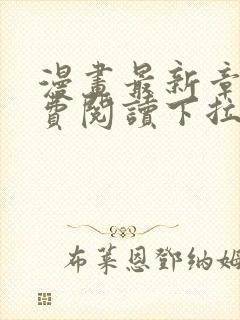 漫畫最新章
費閱讀下拉
布萊恩鄧納姆